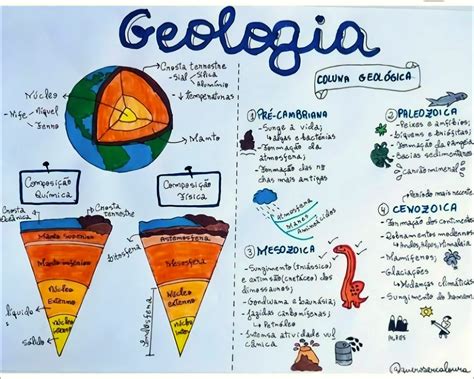 Geologia
Crosta terrestre
-Sial
Sílica
Alumínio
-↓temperaturas
Núcleo
-Nife
Níquel
Ferro
Manto
Composição
Química
Composição
Física
Crosta
Oceânica
Crosta terrestre
Manto Superior
Manto inferior
Núcleo
Externo
Núcleo
líquido
sólido
Litosfera
Astenosfera
Mesosfera
Núcleo
Externo
Núcleo
Endosfera
COLUNA GEOLÓGICA
① PRÉ-CAMBRIANA
-Surge a vida;
↳algas e bactérias
-Formação da
atmosfera;
-Formação das
mais antigas
Atmosfera
Mares
② PALEOZOICA
-Peixes e anfíbios;
-Formação da Pangeia
-bacias sedimentares
↳Carvão mineral
Período mais recente
④ CENOZOICA
-Formação dos continentes
-Dobramentos modernos
↳Andes, Alpes, Himalaia
-Mamíferos;
-Glaciações
↳Mudanças climáticas
-Surgimento do homem
③ MESOZOICA
-Surgimento (triássico)
e extinção (cretáceo) dos
dinossauros;
-Gondwana e Laurásia;
-Jazidas carboníferas;
↳Petróleo
-Intensa atividade vul
cânica